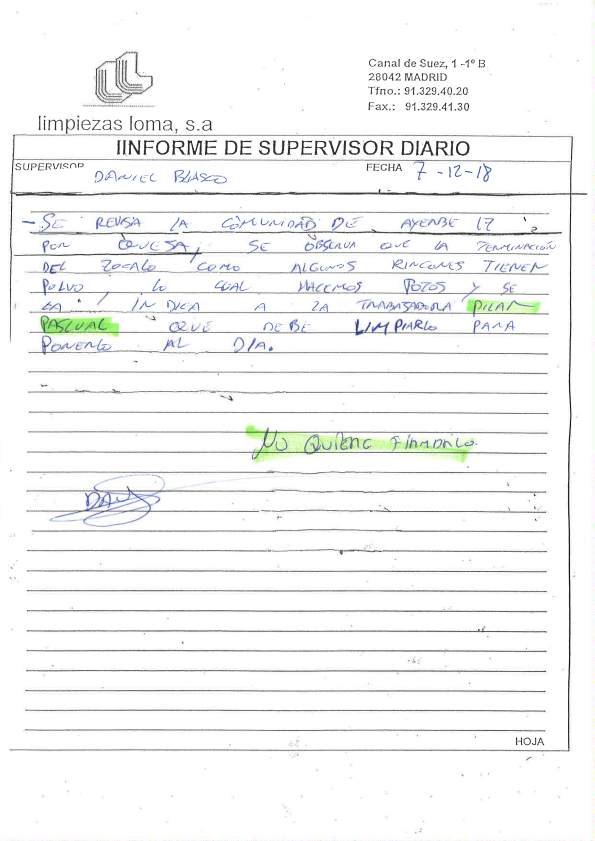 Canal de Suez, 1 -1º B
28042 MADRID
Tfno.: 91.329.40.20
Fax.: 91.329.41.30
limpiezas loma, s.a
IINFORME DE SUPERVISOR DIARIO
SUPERVISOR DANIEL BLASCO FECHA 7-12-18
- SE REVISA LA COMUNIDAD DE AYERBE 17
POR QUESA, SE OBSERVA QUE LA TERMINACIÓN
DEL ZOCALO COMO ALGUNOS RINCONES TIENEN
POLVO LO CUAL HACEMOS FOTOS Y SE
LA INDICA A LA TRABAJADORA PILAR
PASCUAL QUE DEBE LIMPIARLO PARA
PONERLO AL DIA.
NO QUIERE FIRMARLO.
DANI
HOJA